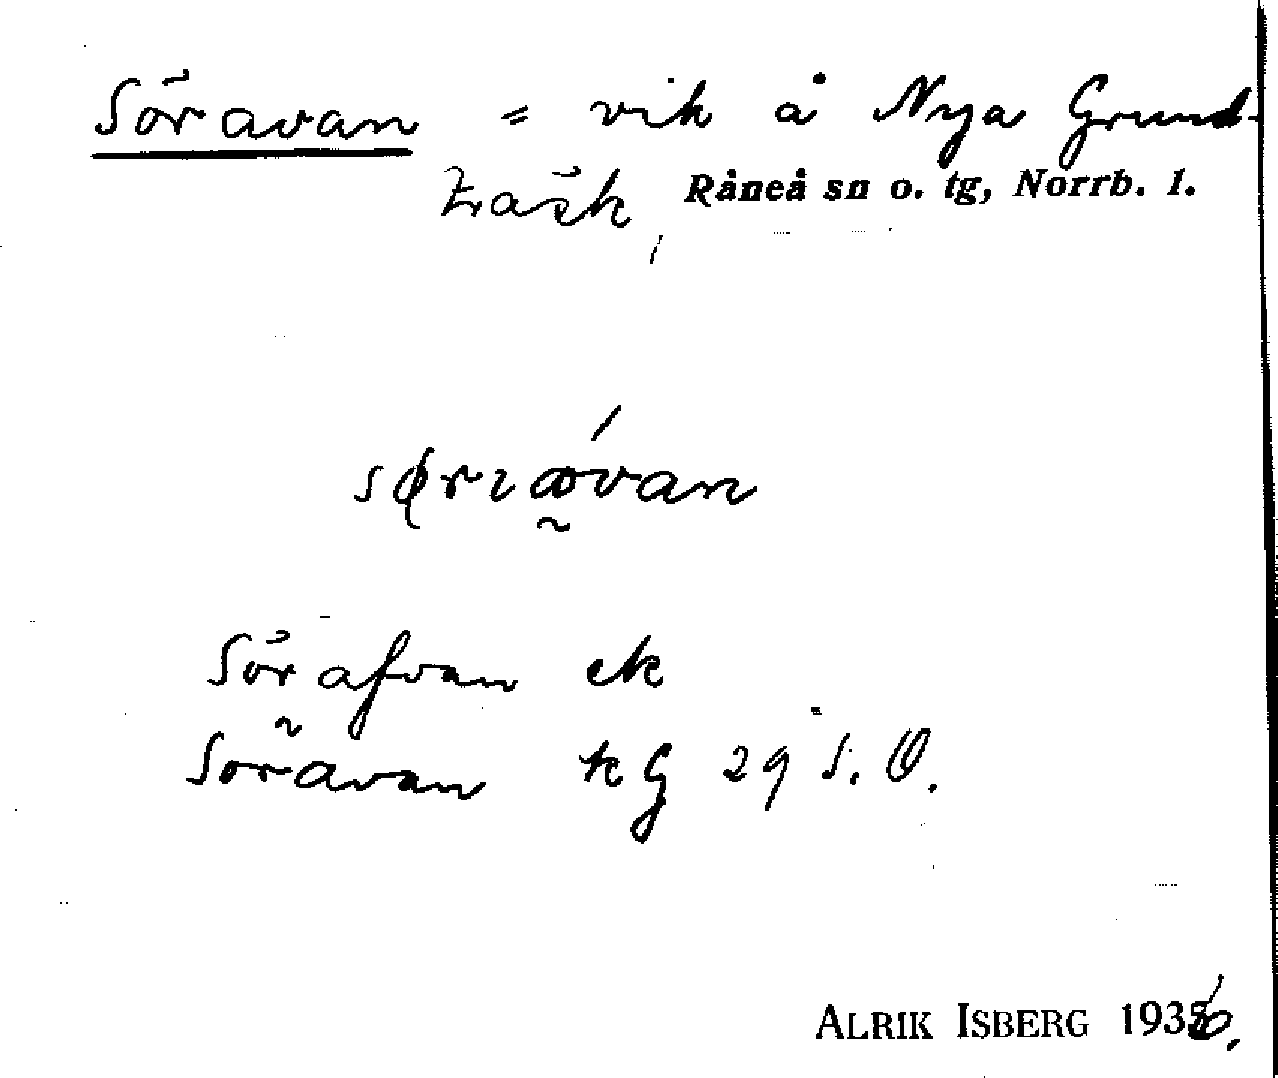 Söravan = vik å Nya Grund-
träsk, Råneå sn o. tg, Norrb. l.
Sörafvan ek
Söravan kG 29 s. O.
ALRIK ISBERG 1936.